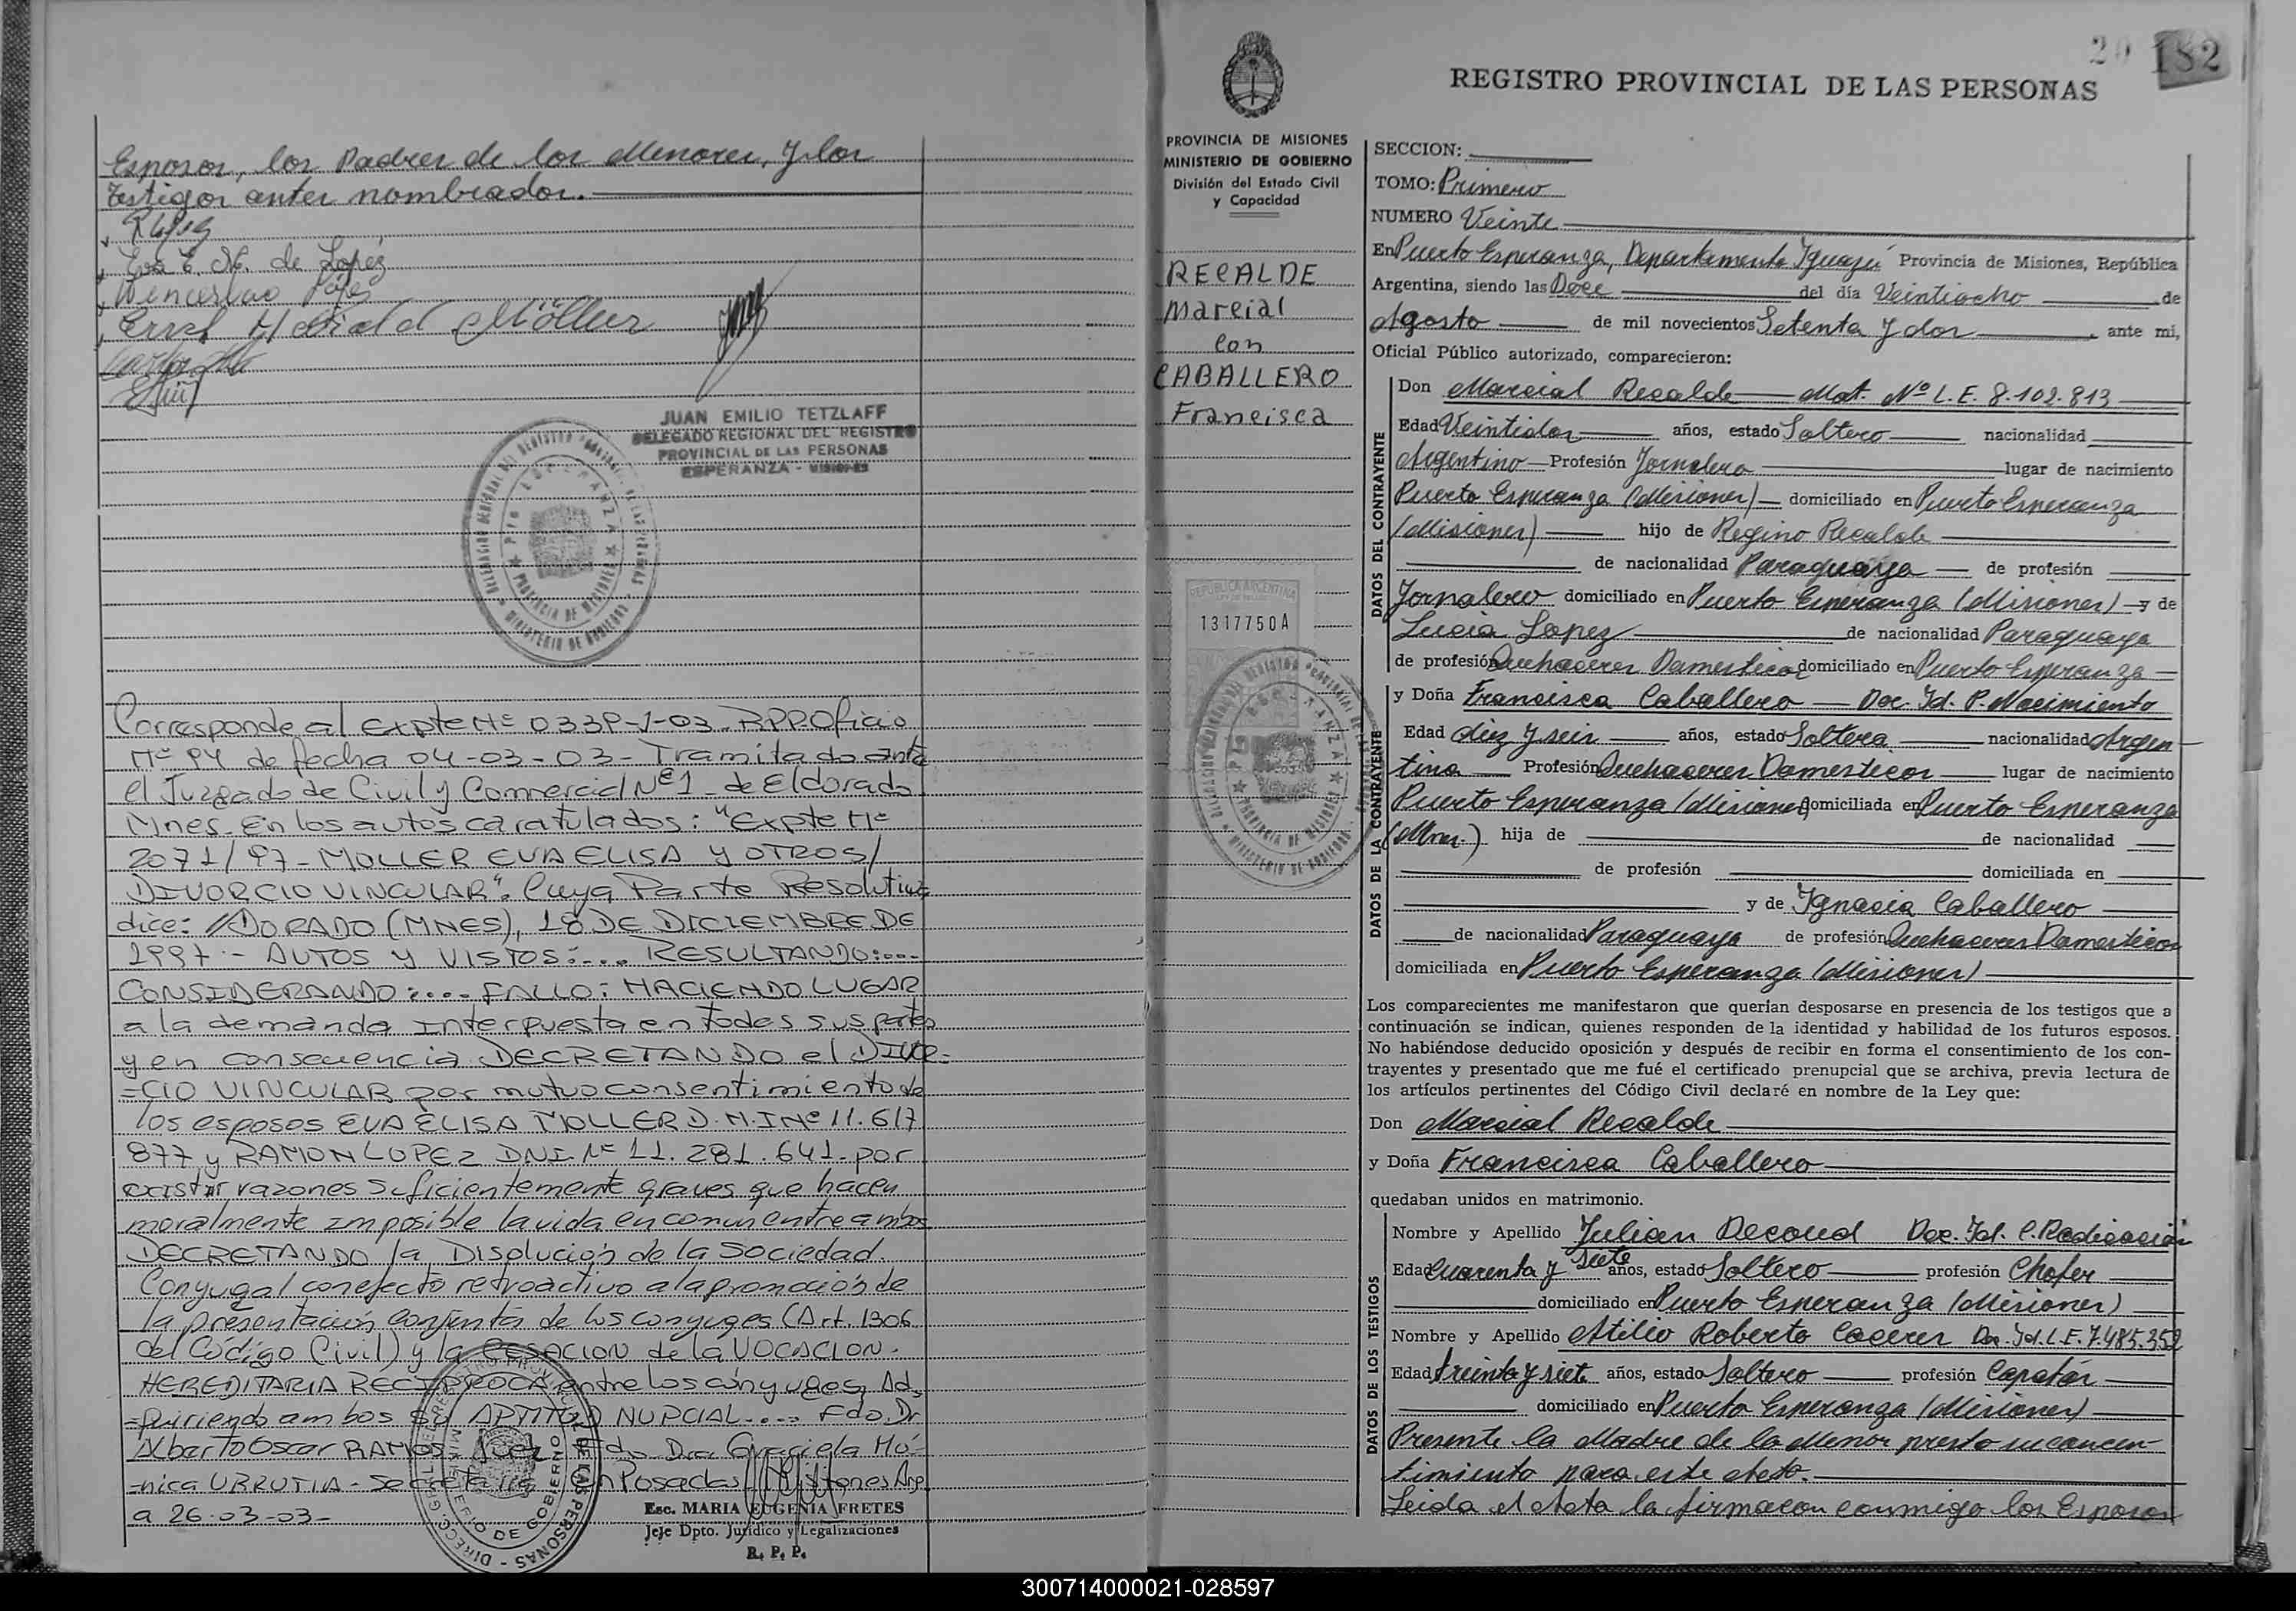 Esposos, los Padres de los Menores, y los
testigos antes nombrados.
Eva E. M. de López
Wenceslao López
Ernst Harald Möller
JUAN EMILIO TETZLAFF
DELEGADO REGIONAL DEL REGISTRO
PROVINCIAL DE LAS PERSONAS
ESPERANZA - MISIONES
Corresponde al Expte Nº 0339-J-03. R.P.P. Oficio
Nº 94 de fecha 04-03-03- Tramitado ante
el Juzgado de Civil y Comercial Nº 1 - de Eldorado
Mnes. En los autos caratulados: "Expte Nº
2071/97- MOLLER EVA ELISA Y OTROS/
DIVORCIO VINCULAR". Cuya Parte Resolutiva
dice: //DORADO (MNES), 18 DE DICIEMBRE DE
1997.- AUTOS Y VISTOS:.... RESULTANDO:....
CONSIDERANDO:.... FALLO: HACIENDO LUGAR
a la demanda interpuesta en todas sus partes
y en consecuencia DECRETANDO el DIVOR-
=CIO VINCULAR por mutuo consentimiento de
los esposos EVA ELISA MOLLER D.N.I Nº 11.617
877 y RAMON LOPEZ DNI. Nº 11.281.641- por
existir razones suficientemente graves que hacen
moralmente imposible la vida en comun entre ambos
DECRETANDO la Disolución de la Sociedad
Conyugal con efecto retroactivo a la promoción de
la presentación conjunta de los conyuges (Art. 1306
del Código Civil) y la CESACION de la VOCACION
HEREDITARIA RECIPROCA entre los cónyuges, Ad,
=quiriendo ambos su APTITUD NUPCIAL.... Fdo. Dr
Alberto Oscar RAMOS Juez Fdo. Dra. Graciela Mó-
=nica URRUTIA - Secretaria En Posadas Misiones Arg.
a 26-03-03-
Esc. MARIA EUGENIA FRETES
Jefe Dpto. Jurídico y Legalizaciones
R. P. P.
20 182
REGISTRO PROVINCIAL DE LAS PERSONAS
PROVINCIA DE MISIONES
MINISTERIO DE GOBIERNO
División del Estado Civil
y Capacidad
RECALDE
Marcial
Con
CABALLERO
Francisca
REPUBLICA ARGENTINA
1317750A
SECCION:
TOMO: Primero
NUMERO Veinte
En Puerto Esperanza, Departamento Iguazú Provincia de Misiones, República
Argentina, siendo las Doce del día Veintiocho de
Agosto de mil novecientos Setenta y dos, ante mi,
Oficial Público autorizado, comparecieron:
DATOS DEL CONTRAYENTE
Don Marcial Recalde Mat. Nº L.E. 8.102.813
Edad Veintidos años, estado Soltero nacionalidad
Argentino Profesión Jornalero lugar de nacimiento
Puerto Esperanza (Misiones) domiciliado en Puerto Esperanza
(Misiones) hijo de Regino Recalde
de nacionalidad Paraguaya de profesión
Jornalero domiciliado en Puerto Esperanza (Misiones) y de
Lucia Lopez de nacionalidad Paraguaya
de profesión Quehaceres Domesticos domiciliado en Puerto Esperanza
DATOS DE LA CONTRAYENTE
y Doña Francisca Caballero Doc. Id. P. Nacimiento
Edad diez y seis años, estado Soltera nacionalidad Argen
tina Profesión Quehaceres Domesticos lugar de nacimiento
Puerto Esperanza (Misiones) domiciliada en Puerto Esperanza
(Mnes.) hija de de nacionalidad
de profesión domiciliada en
y de Ignacia Caballero
de nacionalidad Paraguaya de profesión Quehaceres Domesticos
domiciliada en Puerto Esperanza (Misiones)
Los comparecientes me manifestaron que querían desposarse en presencia de los testigos que a
continuación se indican, quienes responden de la identidad y habilidad de los futuros esposos.
No habiéndose deducido oposición y después de recibir en forma el consentimiento de los con-
trayentes y presentado que me fué el certificado prenupcial que se archiva, previa lectura de
los artículos pertinentes del Código Civil declaré en nombre de la Ley que:
Don Marcial Recalde
y Doña Francisca Caballero
quedaban unidos en matrimonio.
DATOS DE LOS TESTIGOS
Nombre y Apellido Julian Decoud Doc. Id. C. Radicación
Edad Cuarenta y siete años, estado Soltero profesión Chofer
domiciliado en Puerto Esperanza (Misiones)
Nombre y Apellido Atilio Roberto Caceres Doc. Id. L.E. 7.485.352
Edad treinta y siete años, estado Soltero profesión Capatáz
domiciliado en Puerto Esperanza (Misiones)
Presente la Madre de la Menor presto su concen-
timiento para este Acto.
Leida el Acta la firmaron conmigo los Esposos
300714000021-028597